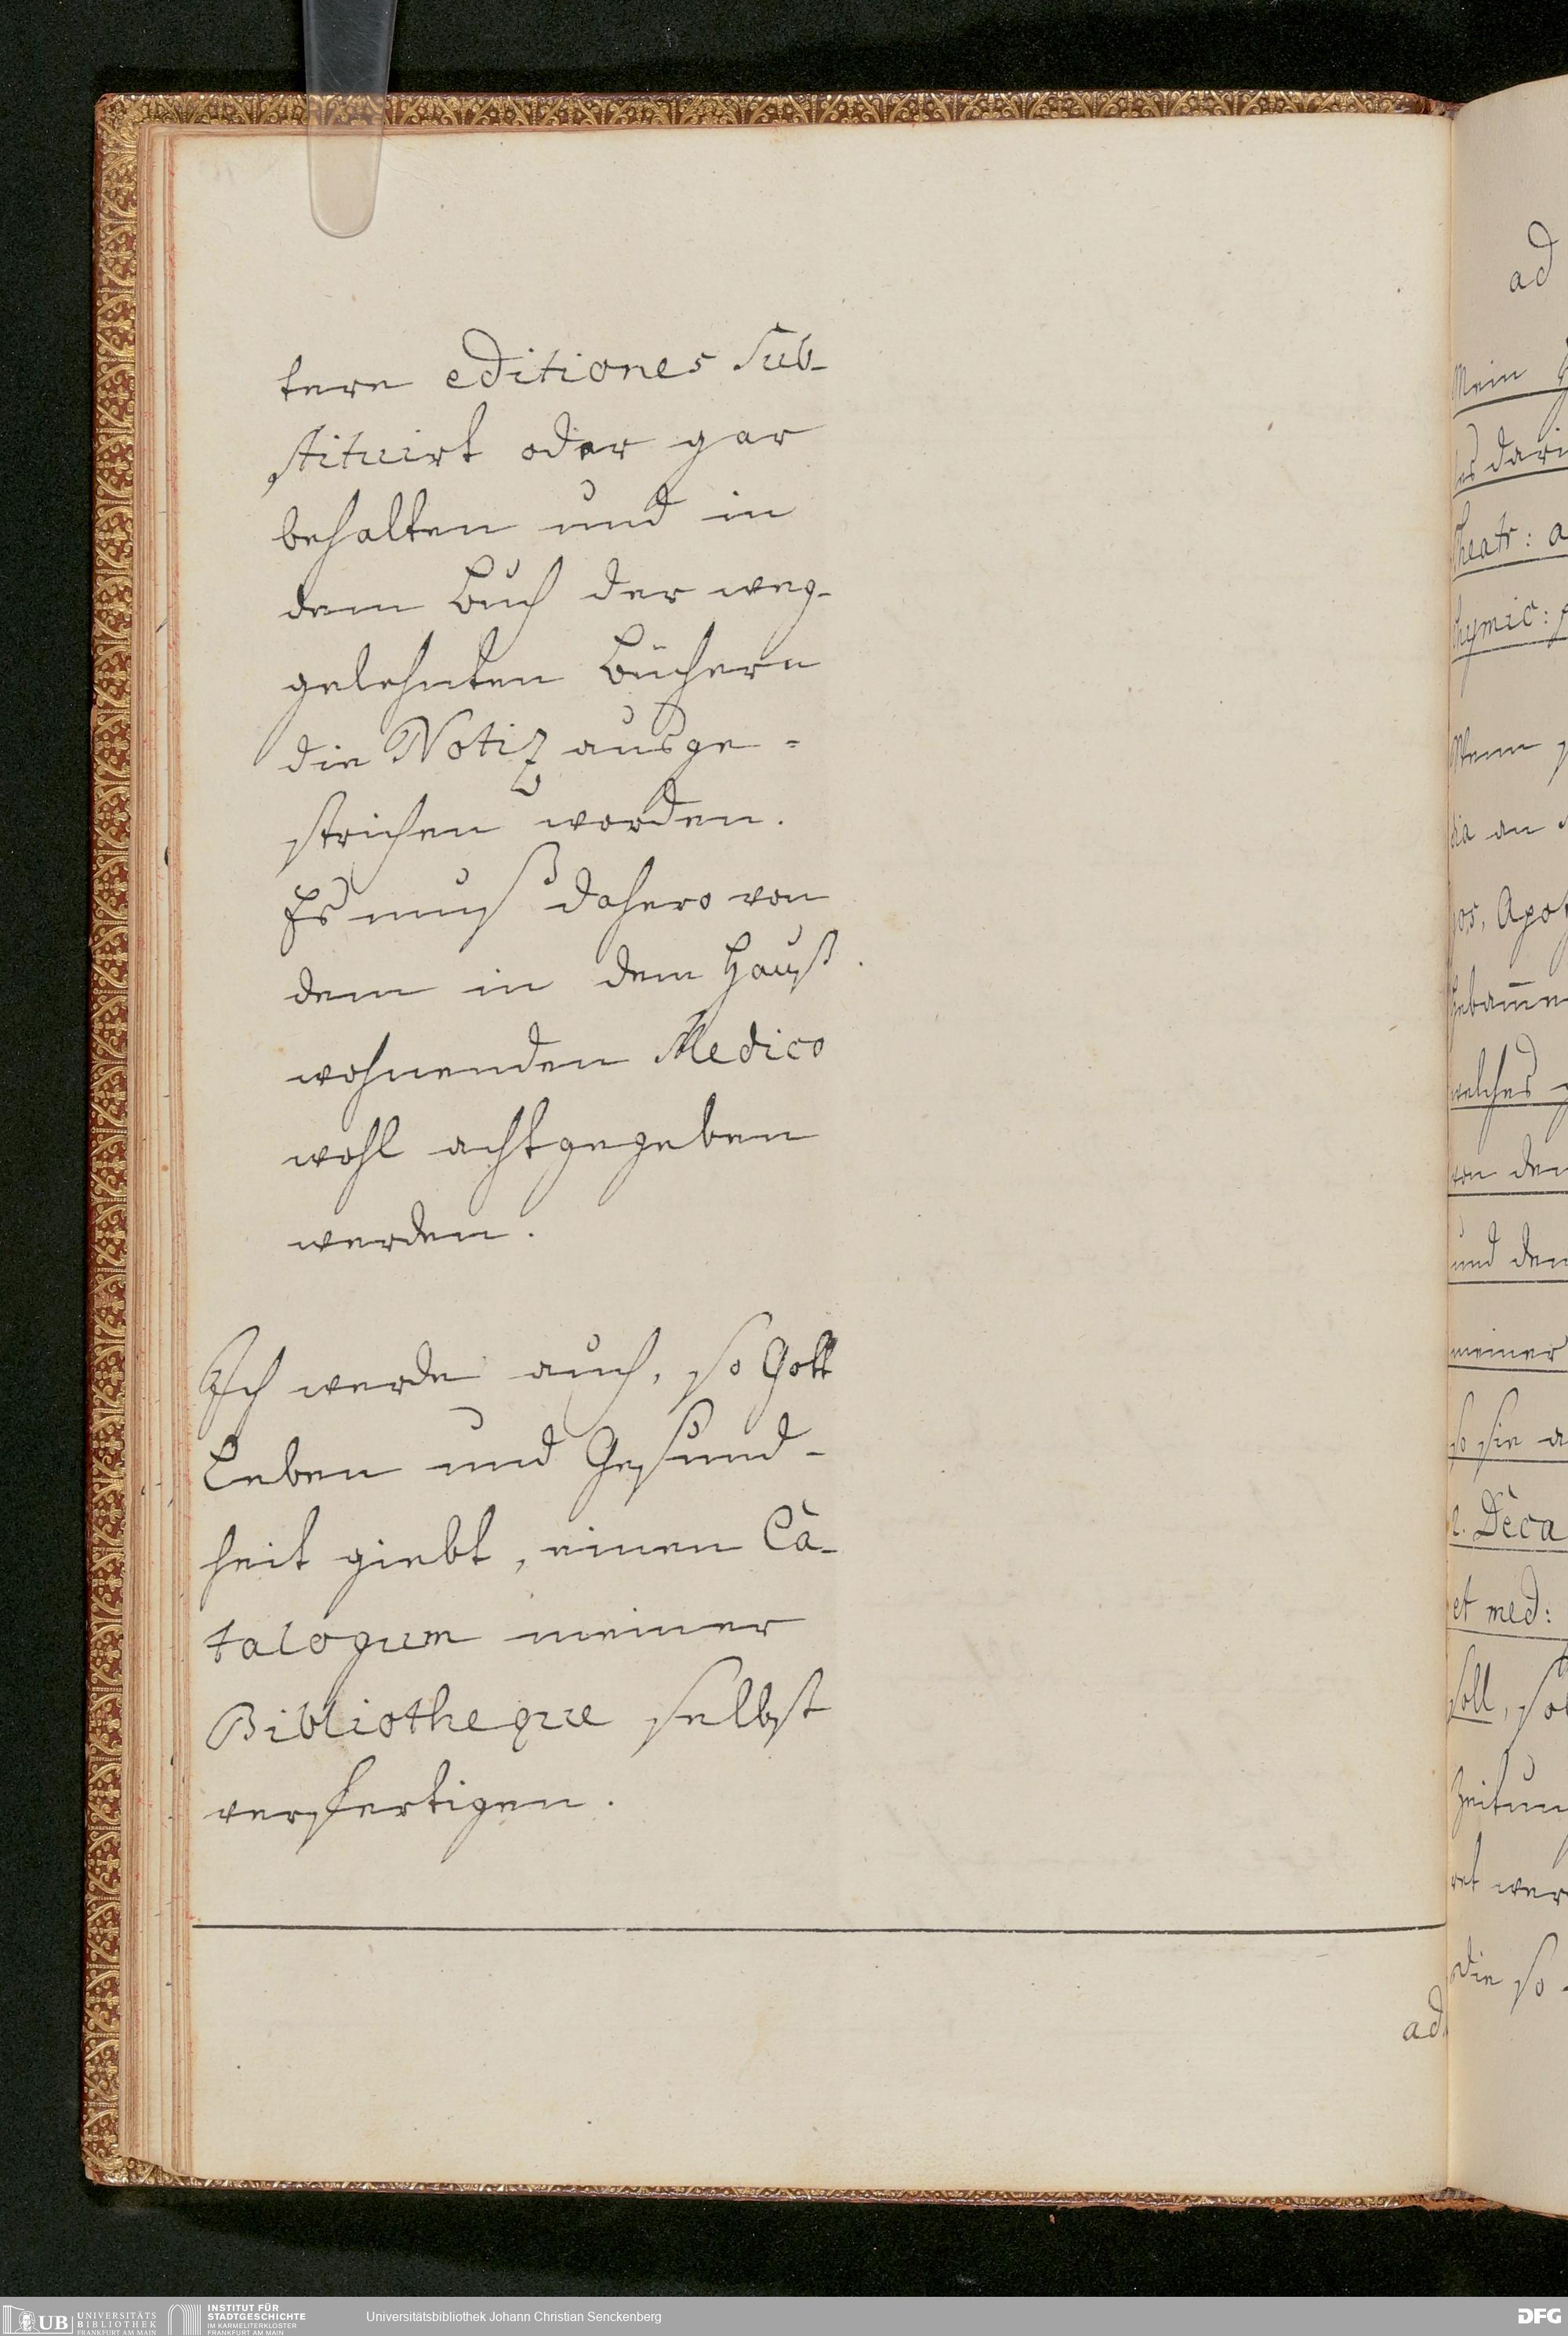 tere editiones Sub-
stituirt oder gar
behalten und in
dem Buch der weg-
gelehnten Büchern
die Notiz ausge-
strichen worden.
Es muß dahero von
dem in dem Hauß
wohnenden Medico
wohl achtgegeben
werden.
Ich werde auch, so Gott
Leben und Gesund-
heit giebt, einen Ca-
talogum meiner
Bibliotheque selbst
verfertigen.
ad
ad
Mein
es dari
Theatr: a
hymic:
Wenn
dia an
pos, Apot
Hebam̅e
welches
von den
und den
meiner
so sie a
2. Deca
et med:
soll, so
Zeitun
ret wer
die so
UB UNIVERSITÄTS
BIBLIOTHEK
FRANKFURT AM MAIN
INSTITUT FÜR
STADTGESCHICHTE
IM KARMELITERKLOSTER
FRANKFURT AM MAIN
Universitätsbibliothek Johann Christian Senckenberg
DFG